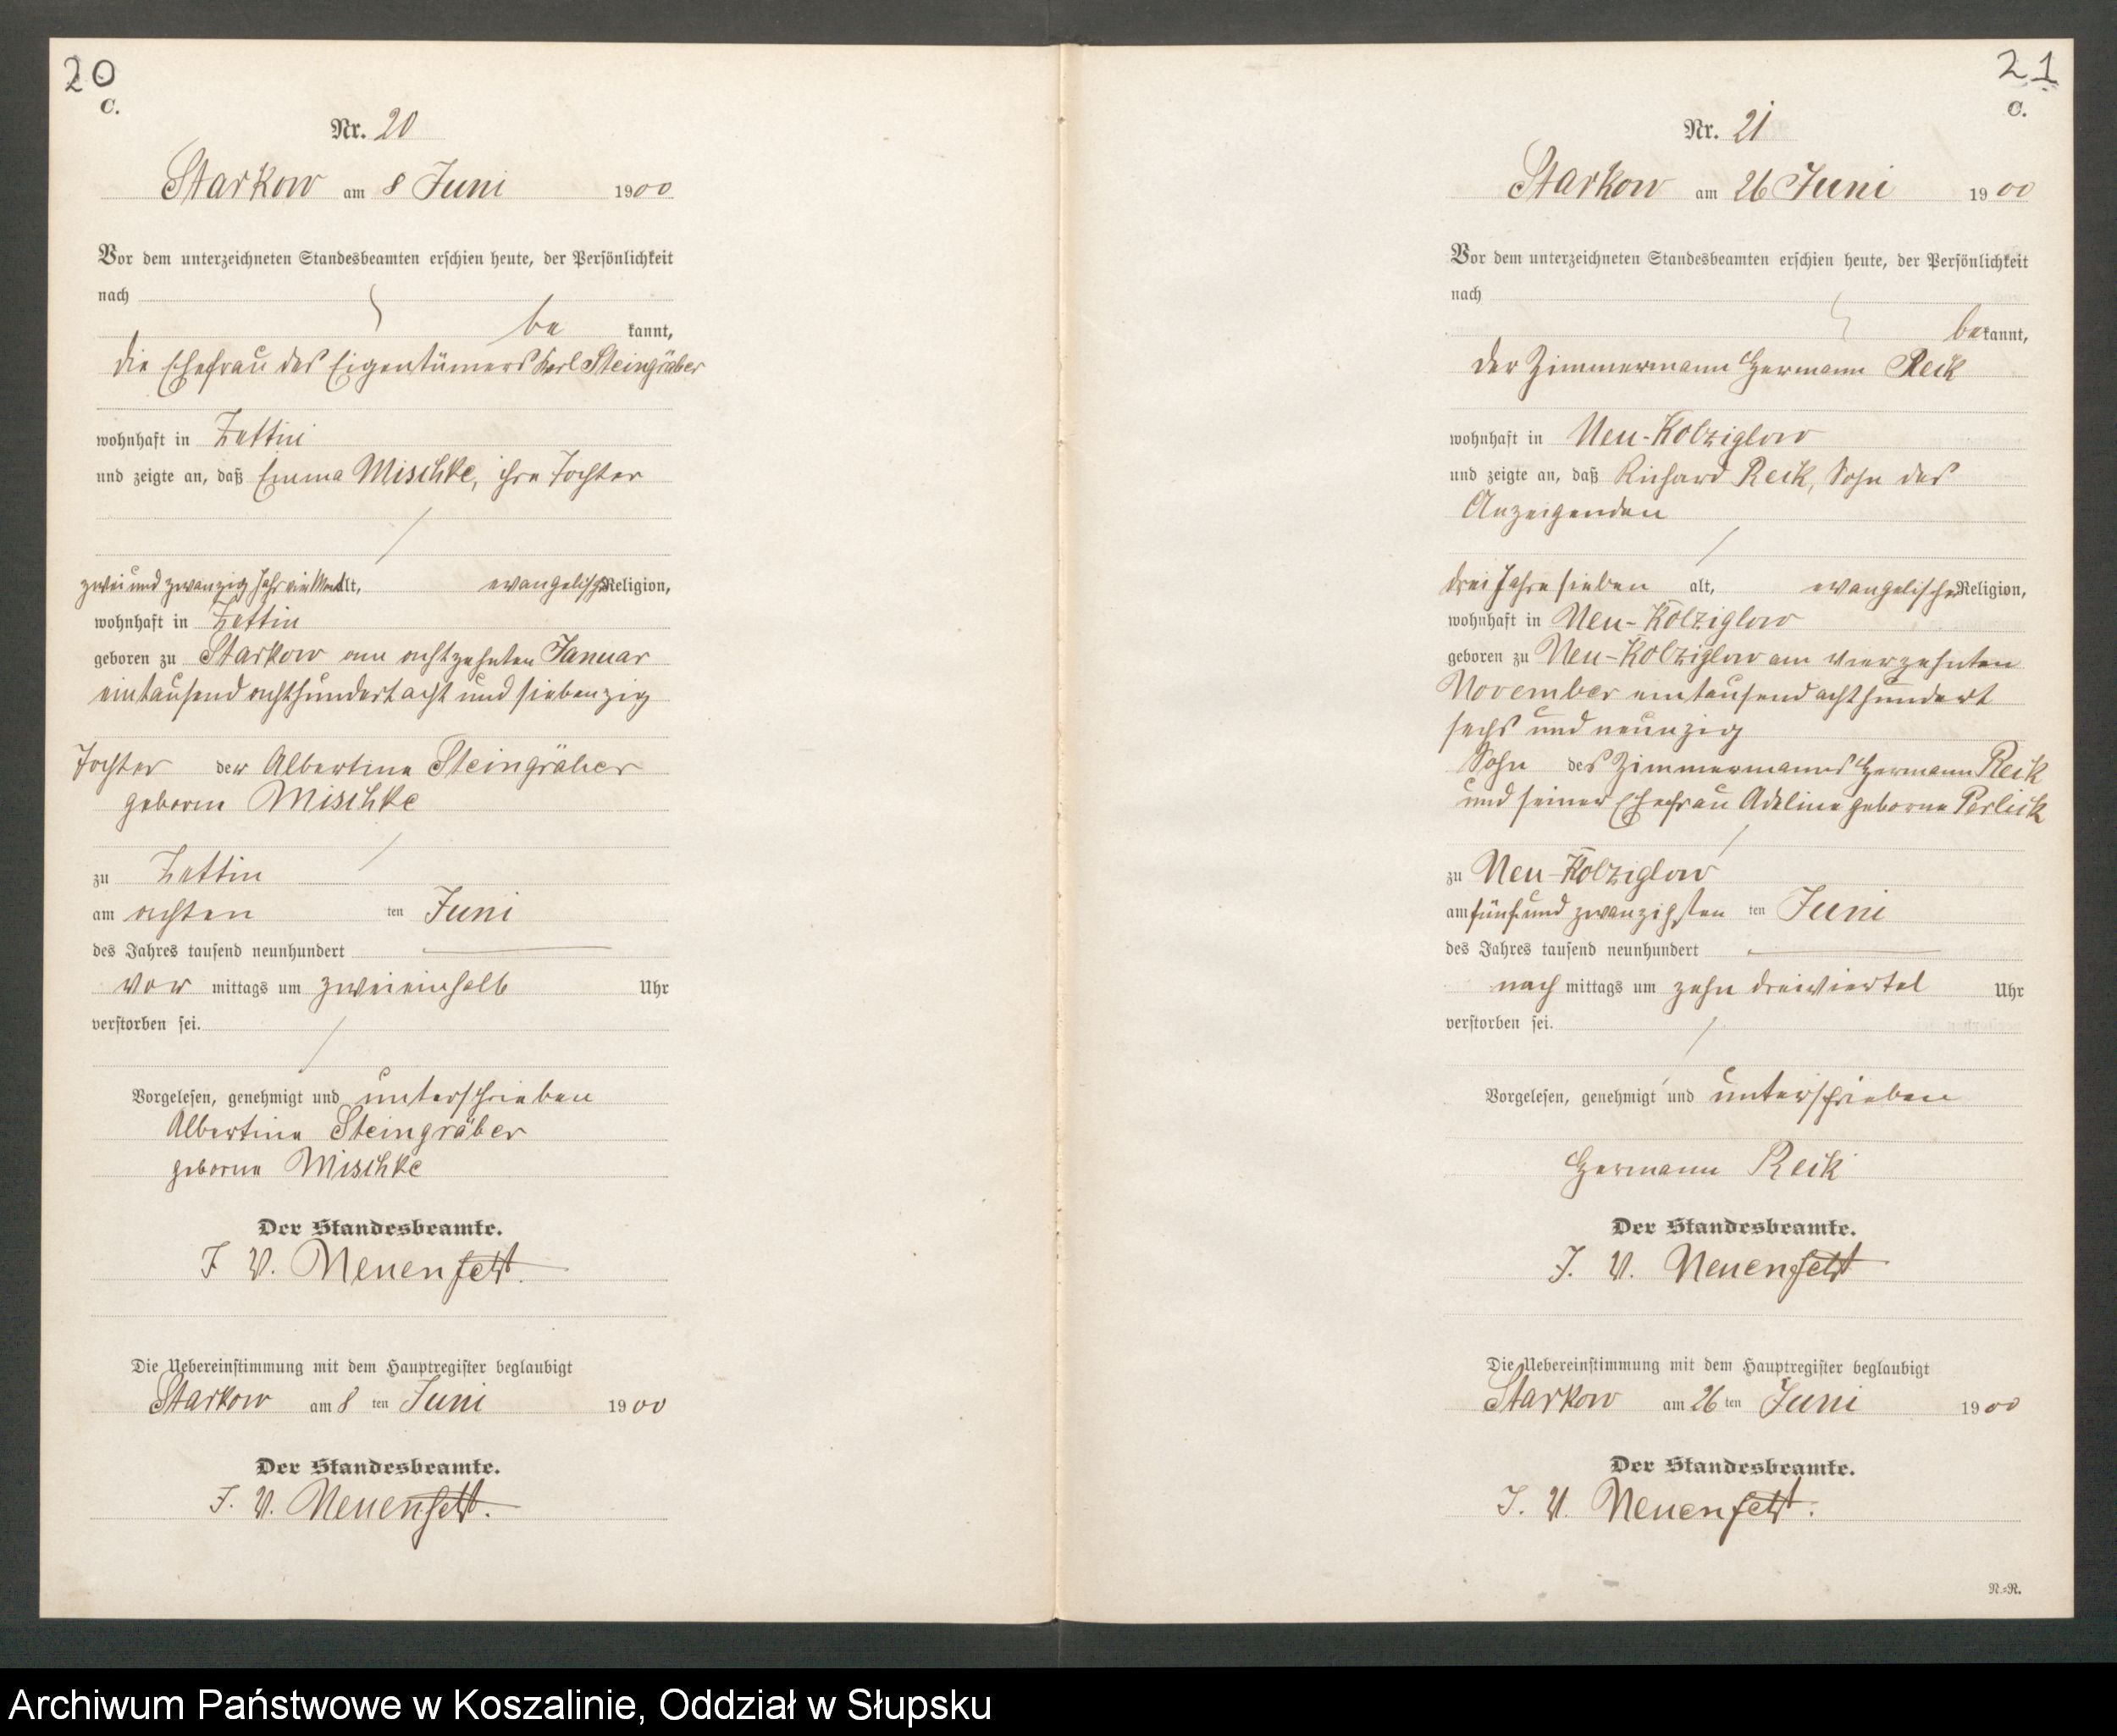 20
C.
Nr. 20
Starkow am 8 Juni 1900
Vor dem unterzeichneten Standesbeamten erschien heute, der Persönlichkeit
nach
be kannt,
die Ehefrau des Eigentümers Karl Steingräber
wohnhaft in Zettin
und zeigte an, daß Emma Mischke, ihre Tochter
zwei und zwanzig Jahr alt, evangelischer Religion,
wohnhaft in Zettin
geboren zu Starkow am achtzehnten Januar
eintausend achthundert acht und siebenzig
Tochter der Albertine Steingräber
geborne Mischke
zu Zettin
am achten ten Juni
des Jahres tausend neunhundert
vor mittags um zweieinhalb Uhr
verstorben sei.
Vorgelesen, genehmigt und unterschrieben
Albertine Steingräber
geborne Mischke
Der Standesbeamte.
J. V. Neuenfeldt.
Die Uebereinstimmung mit dem Hauptregister beglaubigt
Starkow am 8 ten Juni 1900
Der Standesbeamte.
J. V. Neuenfeldt.
21
C.
Nr. 21
Starkow am 26 Juni 1900
Vor dem unterzeichneten Standesbeamten erschien heute, der Persönlichkeit
nach
bekannt,
der Zimmermann Hermann Reik
wohnhaft in Neu-Kolziglow
und zeigte an, daß Richard Reik, Sohn des
Anzeigenden
drei Jahre sieben alt, evangelischer Religion,
wohnhaft in Neu-Kolziglow
geboren zu Neu-Kolziglow am vierzehnten
November eintausend achthundert
sechs und neunzig
Sohn des Zimmermanns Hermann Reik
und seiner Ehefrau Adeline geborne Perlick
zu Neu-Kolziglow
am fünf und zwanzigsten ten Juni
des Jahres tausend neunhundert
nach mittags um zehn dreiviertel Uhr
verstorben sei.
Vorgelesen, genehmigt und unterschrieben
Hermann Reik
Der Standesbeamte.
J. V. Neuenfeldt
Die Uebereinstimmung mit dem Hauptregister beglaubigt
Starkow am 26 ten Juni 1900
Der Standesbeamte.
J. V. Neuenfeldt.
N.=N.
Archiwum Państwowe w Koszalinie, Oddział w Słupsku